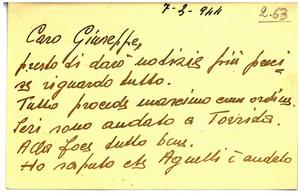 7-3-944
2.63
Caro Giuseppe,
presto ti darò notizie più preci
se riguardo tutto.
Tutto procede
Ieri sono andato a Torrida.
Alla foce tutto bene.
Ho saputo che Agnelli è andato